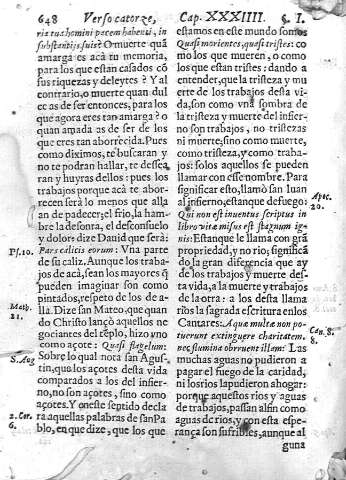 648 Verso catorze, Cap. XXXIIII. §. I.
ria tua homini pacem habenti, in
substantijs suis? O muerte quã
amarga es acà tu memoria,
para los que estan casados cõ
sus riquezas y deleytes? Y al
contrario, o muerte quan dul
ce as de ser entonces, para los
que agora eres tan amarga? o
quan amada as de ser de los
que eres tan aborrecida. Pues
como diximos, te buscaran y
no te podran hallar, te dessea
ran y huyras dellos: pues los
trabajos porque acà te abor-
recen serà lo menos que alla
an de padecer; el frio, la ham-
bre la desonra, el desconsuelo
y dolor: dize Dauid que serà:
Psf. 10. Pars calicis eorum: Vna parte
de su caliz. Aunque los traba-
jos de acà, sean los mayores q̃
pueden imaginar son como
pintados, respeto de los de a-
Math. 21. lla. Dize san Mateo, que quan
do Christo lançò aquellos ne
gociantes del tẽplo, hizo vno
como açote: Quasi flagellum:
S. Aug Sobre lo qual nota san Agus-
tin, que los açotes desta vida
comparados a los del infier-
no, no son açotes, sino como
açotes. Y en este septido decla
2. Cor. 6. ra aquellas palabras de san Pa
blo, en que dize, que los que
estamos en este mundo somos
Quasi morientes, quasi tristes: co
mo los que mueren, o como
los que estan tristes: dando a
entender, que la tristeza y mu
erte de los trabajos desta vi-
da, son como vna sombra de
la tristeza y muerte del infier-
no son trabajos, no tristezas
ni muerte; sino como muerte,
como tristeza, y como traba-
jos: solos aquellos se pueden
llamar con esse nombre. Para
significar esto, llamò san Iuan
al infierno, estanque de fuego:
Apoc. 20. Qui non est inuentus scriptus in
libro vitæ missus est stagnum ig-
nis: Estanque le llama con grã
propriedad, y no rio; significã
do la gran diferencia que ay
de los trabajos y muerte des-
ta vida, a la muerte y trabajos
de la otra: a los desta llama
rios la sagrada escritura en los
Cantares: Aquæ multæ non po-
Can. 8. 8. tuerunt extinguere charitatem.
nec flumina obruent illam: Las
muchas aguas no pudieron a
pagar el fuego de la caridad,
ni los rios lapudieron ahogar:
porque aquestos rios y aguas
de trabajos, passan assi n como
aguas de rios, y con esta espe-
rança son sufribles, aunque al
guna